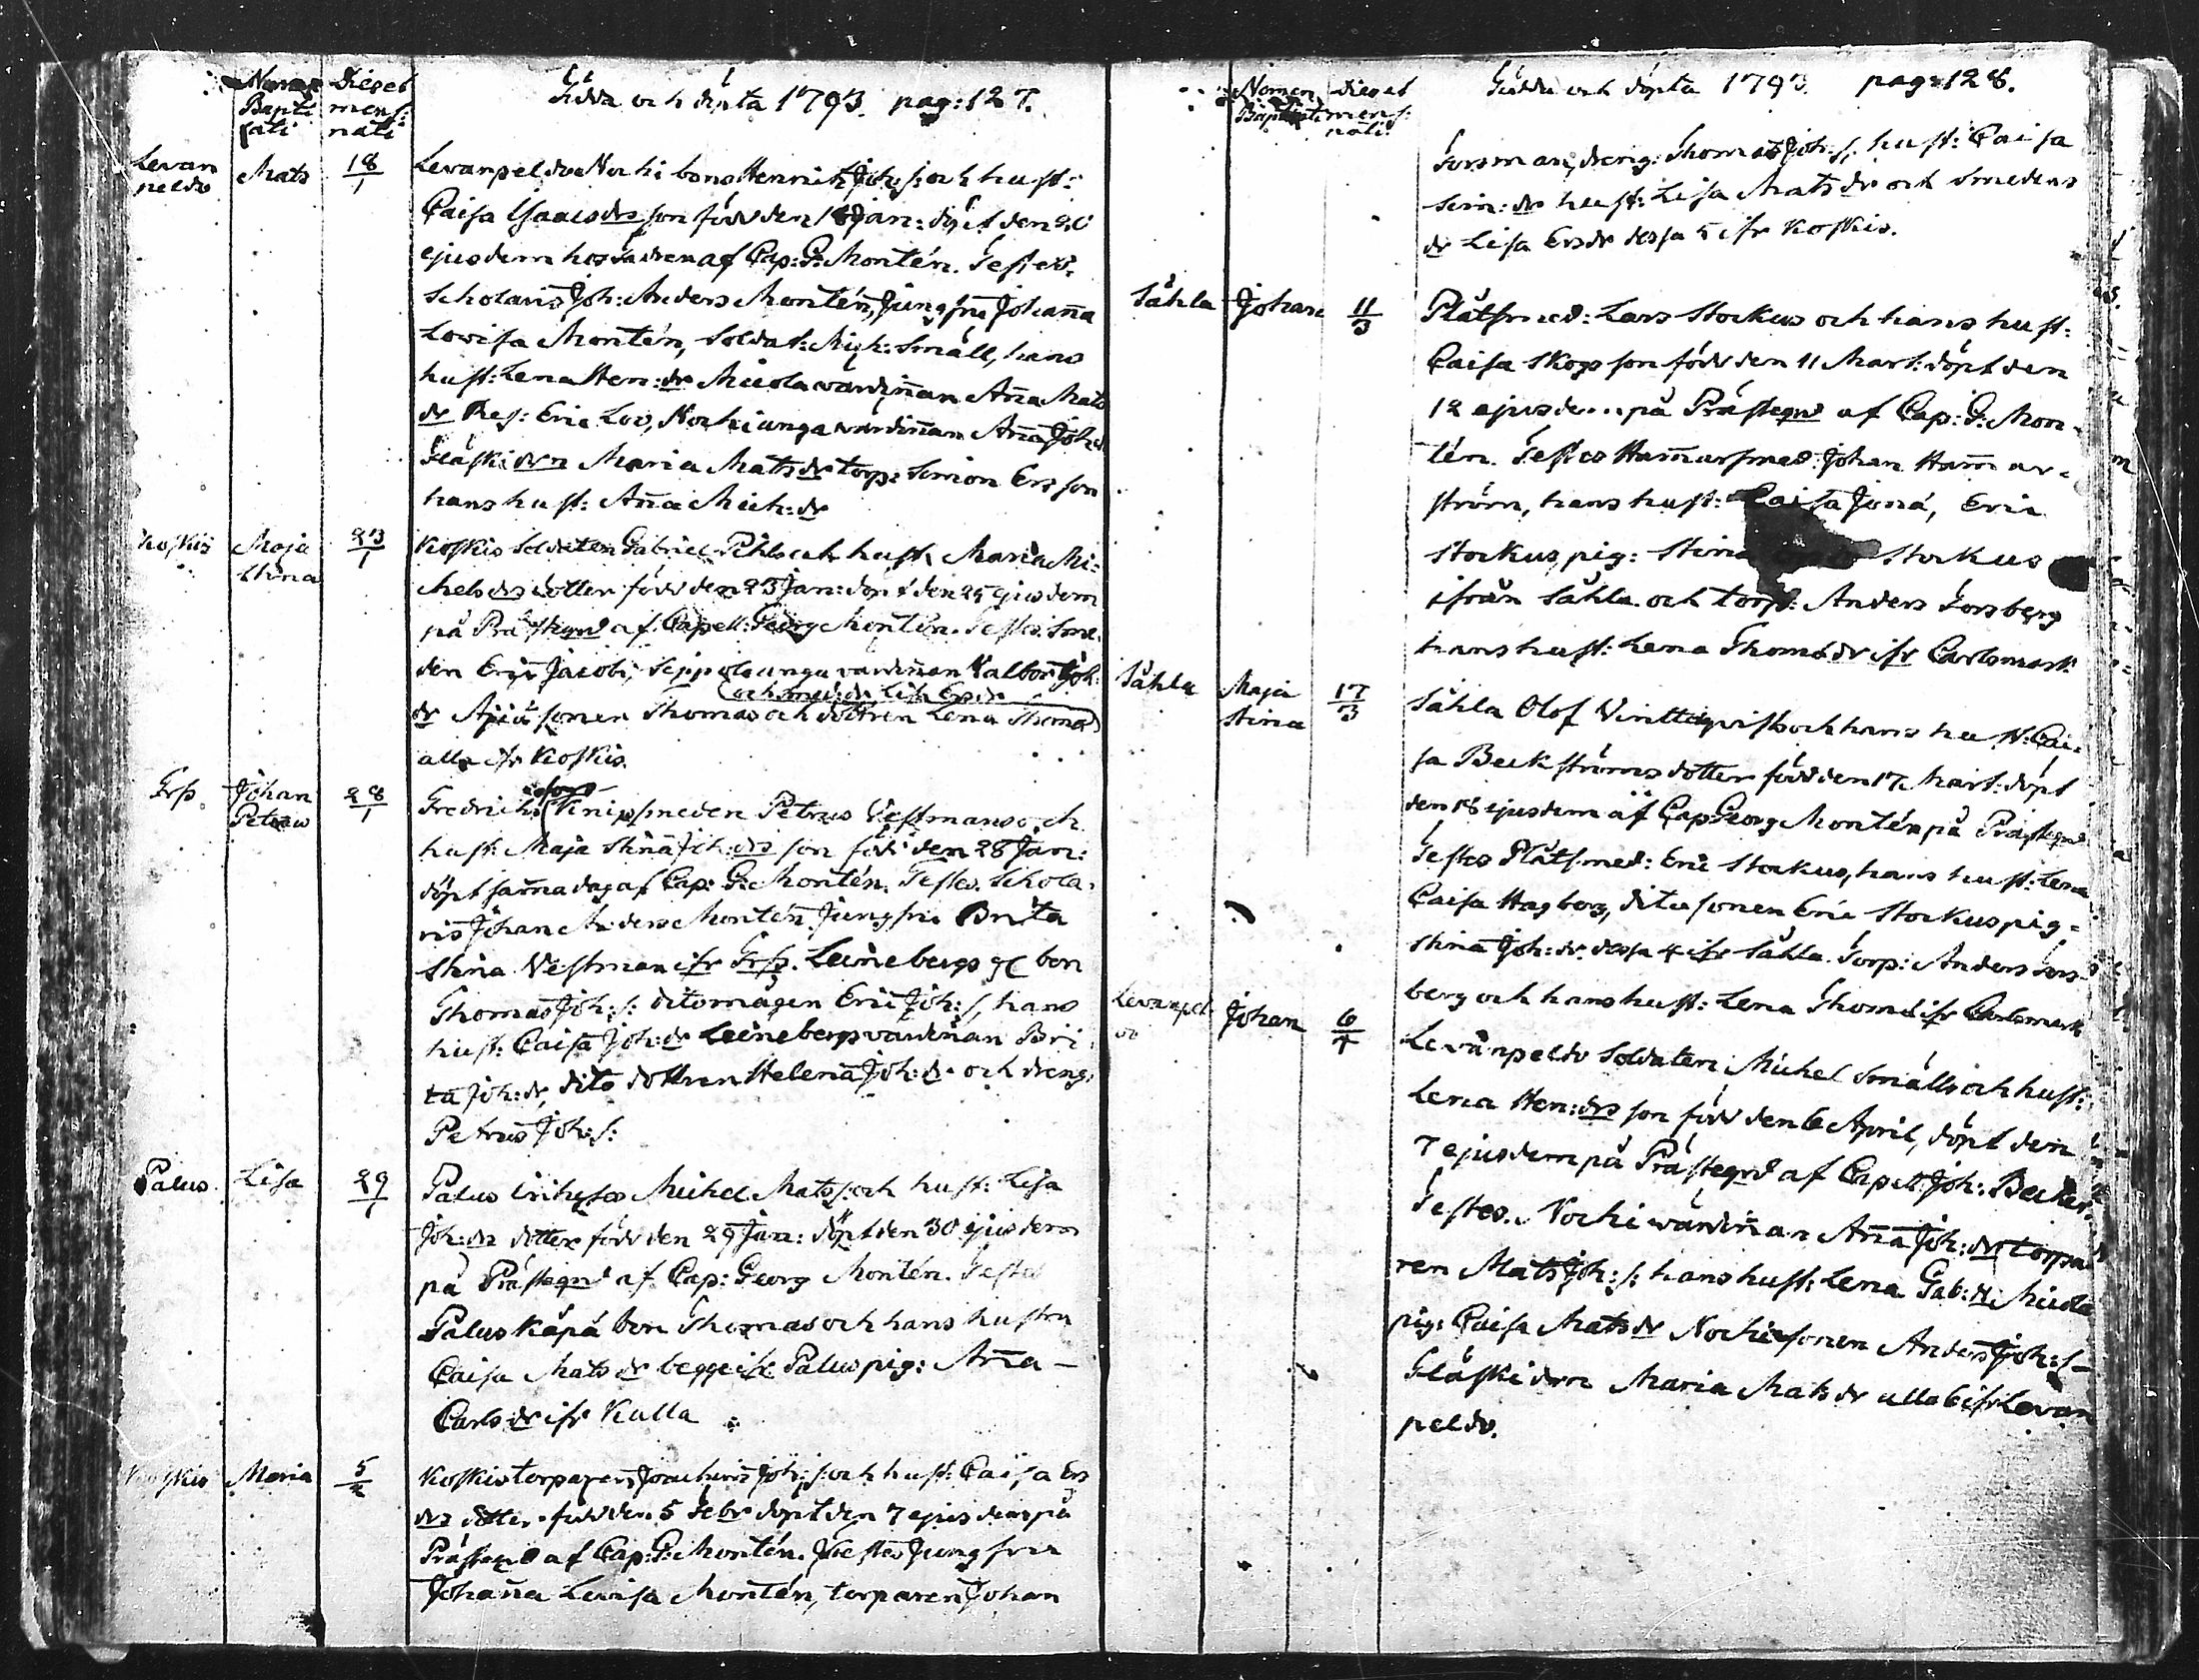 Nomen Dies et
Bapti mens:
sati nati
Födda och döpta 1793. pag: 127.
Levan Mats 18/1 Levanpeldo Nocki bons Henrich Joh: s: och hust:
peldo Caisa Isaacsdrs son född den 18 Jan: döpt den 20
ejusdem hos fadren af Cap: G: Montén. Testes.
Scholaris Joh: Anders Montén, Jungfru Johanna
Lovisa Montén, Soldat: Mich: Smäll, hans
hust: Lena Hen: dr Micola wärdinnan Anna Mats
dr Eric Loo, Nocki unga wärdinnan Anna Joh: dr
Fläski Maria Mats dr torp: Simon Ers son
hans hust: Anna Mich: dr
Koskis Maja 23/1 Koskis Soldaten Gabriel Pihls och hust: Maria Mi:
Stina chels drs dotter född den 23 Jan: döpt den 25 ejusdem
på Prästegrd af Capell: Georg Montén. Testes. Sme
den Eric Jacobi, Seppols unga wärdinnan Valbor Joh:
och smed: dr Lis: Ers dr
dr Äijälä sonen Thomas och dottren Lena Thoms
alla ifr Koskis.
Frß. Johan 28/1 Fredrichsfors Knipsmeden Petrus Vestmans och
Petrus hust: Maja Stina Joh: drs son född den 28 Jan:
döpt samma dag af Cap: G: Montén. Testes. Schola:
ris Johan Anders Montén Jungfru Brita
Stina Vestman ifr Frß. Leinebergs g: bon
Thomas Joh: s: dito mågen Eric Joh: s, hans
hust: Caisa Joh: dr Leinebergs wärdinnan Bri:
ta Joh: dr, dito dottren Helena Joh: dr och dreng:
Petrus Joh: s:
Palus. Lisa 29/1 Palus Michel Mats s: och hust: Lisa
Joh: drs dotter född den 29 Jan: döpt den 30 ejusdem
på Prästegrd af Cap: Georg Montén. Testes
Palus Käpä bon Thomas och hans hustru
Caisa Mats dr begge ifr Palus pig: Anna
Carls dr ifr Kulla
Koskis Maria 5/2 Koskis torparen Joachims Joh: s: och hust: Caisa Ers
drs dotter född den 5 Febr döpt den 7 ejusdem på
Prästegrd af Cap: G: Montén. Testes Jungfru
Johanna Lovisa Montén, torparen Johan
Nomen Dies et
Baptisati mens:
nati
Födda och döpta 1793. pag: 128.
Forsman, dreng: Thomas Joh: s, hust: Caisa
Sim: dr hust: Lisa Mats dr och Smedens
dr Lisa Ers dr dessa 5 ifr Koskis.
Sähla Johan 11/3 Plåtsmed: Lars Stockus och hans hust:
Caisa Skogs son född den 11 Mart: döpt den
12 ejusdem på Prästegrd af Cap: G: Mon:
tén. Testes Hammarsmed: Johan Hammar:
ström, hans hust: Caisa Jona, Eric
Stockus, pig: Stina Stockus
ifrån Sähla. och torp: Anders Forsberg
hans hust: Lena Thoms dr ifr Carlsmark
Sähla Maja 17/3 Sähla Olof Vinttqvists och hans hust: Cai:
Stina sa Beckströms dotter född den 17 Mart: döpt
den 18 ejusdem af Cap: Georg Montén på Prästegrd
Testes Plåtsmed: Eric Stockus, hans hust: Lena
Caisa Hagberg, dito sonen Eric Stockus pig:
Stina Joh: dr. dessa 4 ifr Sähla. Torp: Anders Fors:
berg och hans hust: Lena Thoms ifr Carlsmark
Levanpel Johan 6/4 Levanpeldo Soldaten Michel Smälls och hust:
do Lena Hen: drs son född den 6 April, döpt den
7 ejusdem på Prästegrd af Capell: Joh: Becker.
Testes. Nocki wärdinnan Anna Joh: dr, torpa
ren Mats Joh: s: hans hust: Lena Gab: dr, Micola
pig: Caisa Mats dr Nocki sonen Anders Joh: s
Fläski Maria Mats dr alla 6 ifr Levan
peldo.